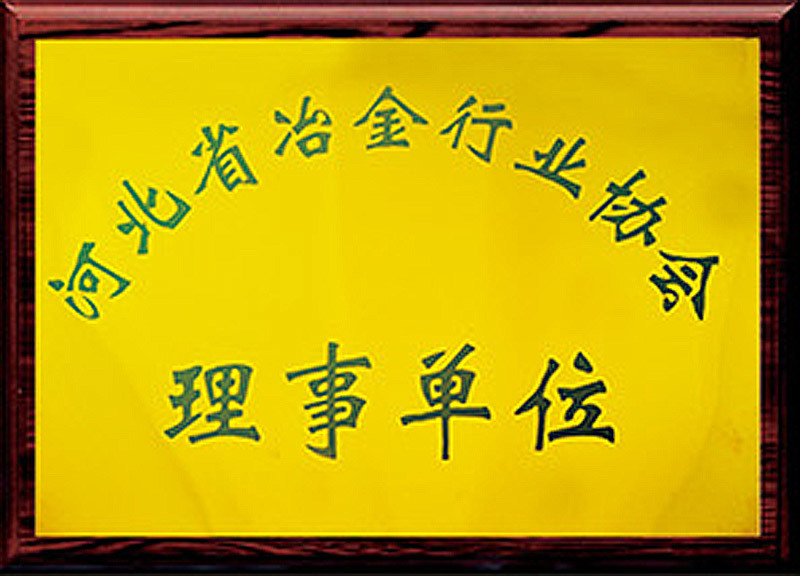 河北省冶金行业协会
理事单位